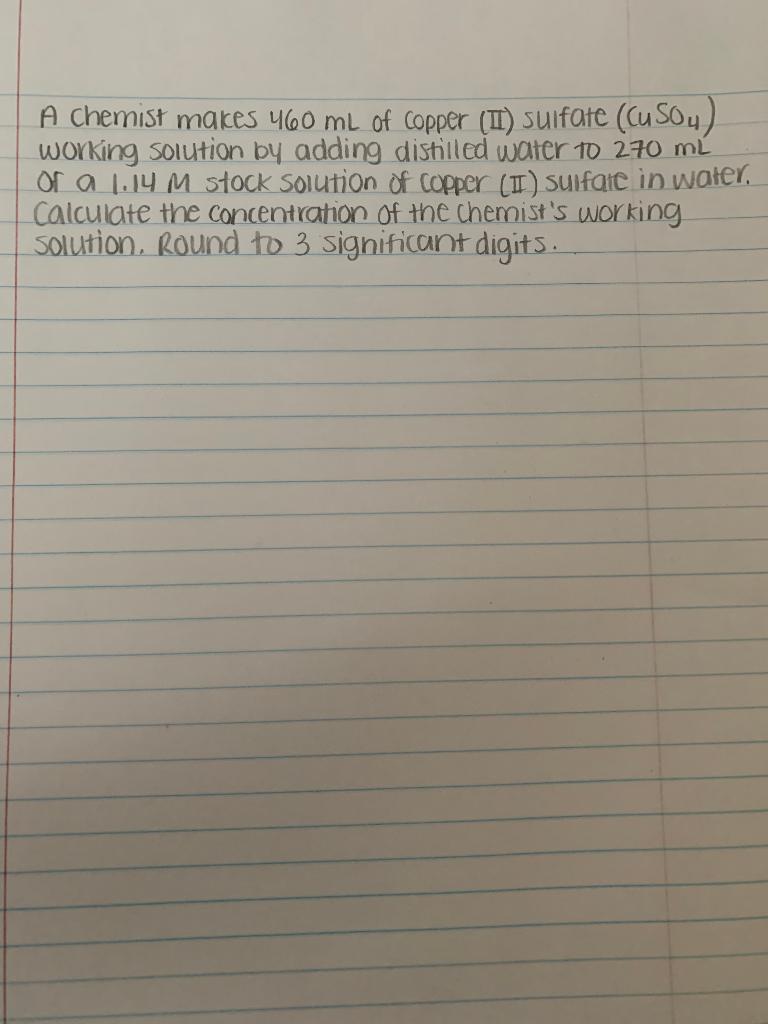 A chemist makes 460 mL of copper (II) sulfate (CuSO4)
working solution by adding distilled water to 270 mL
of a 1.14 M stock solution of copper (II) sulfate in water.
Calculate the concentration of the chemist's working
solution. Round to 3 significant digits.